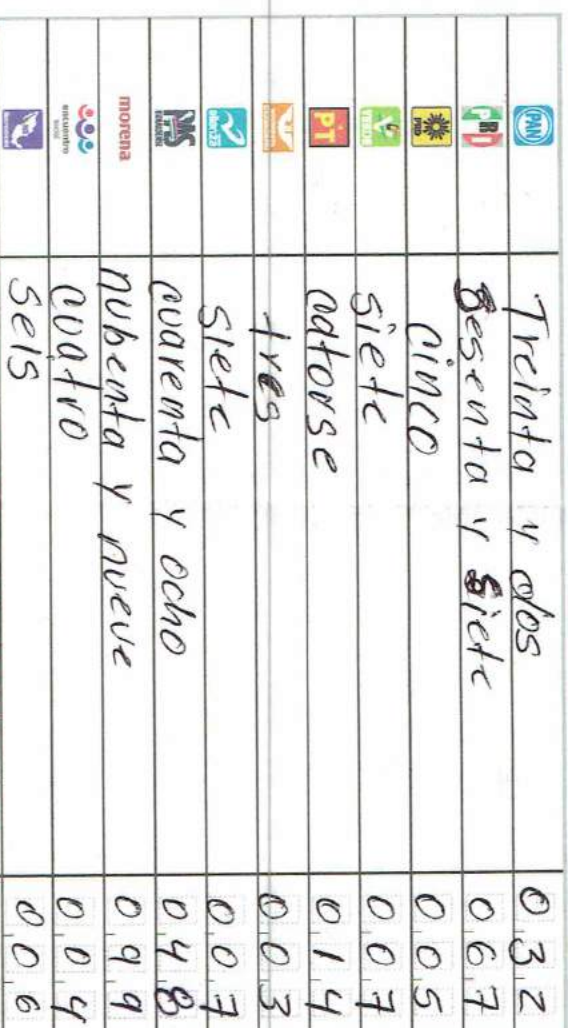 PAN Treinta y dos 032
PRI Sesenta y siete 067
PRD cinco 005
VERDE siete 007
PT catorse 014
tres 003
siete 007
cuarenta y ocho 048
morena nubenta y nueve 099
encuentro social cuatro 004
seis 006